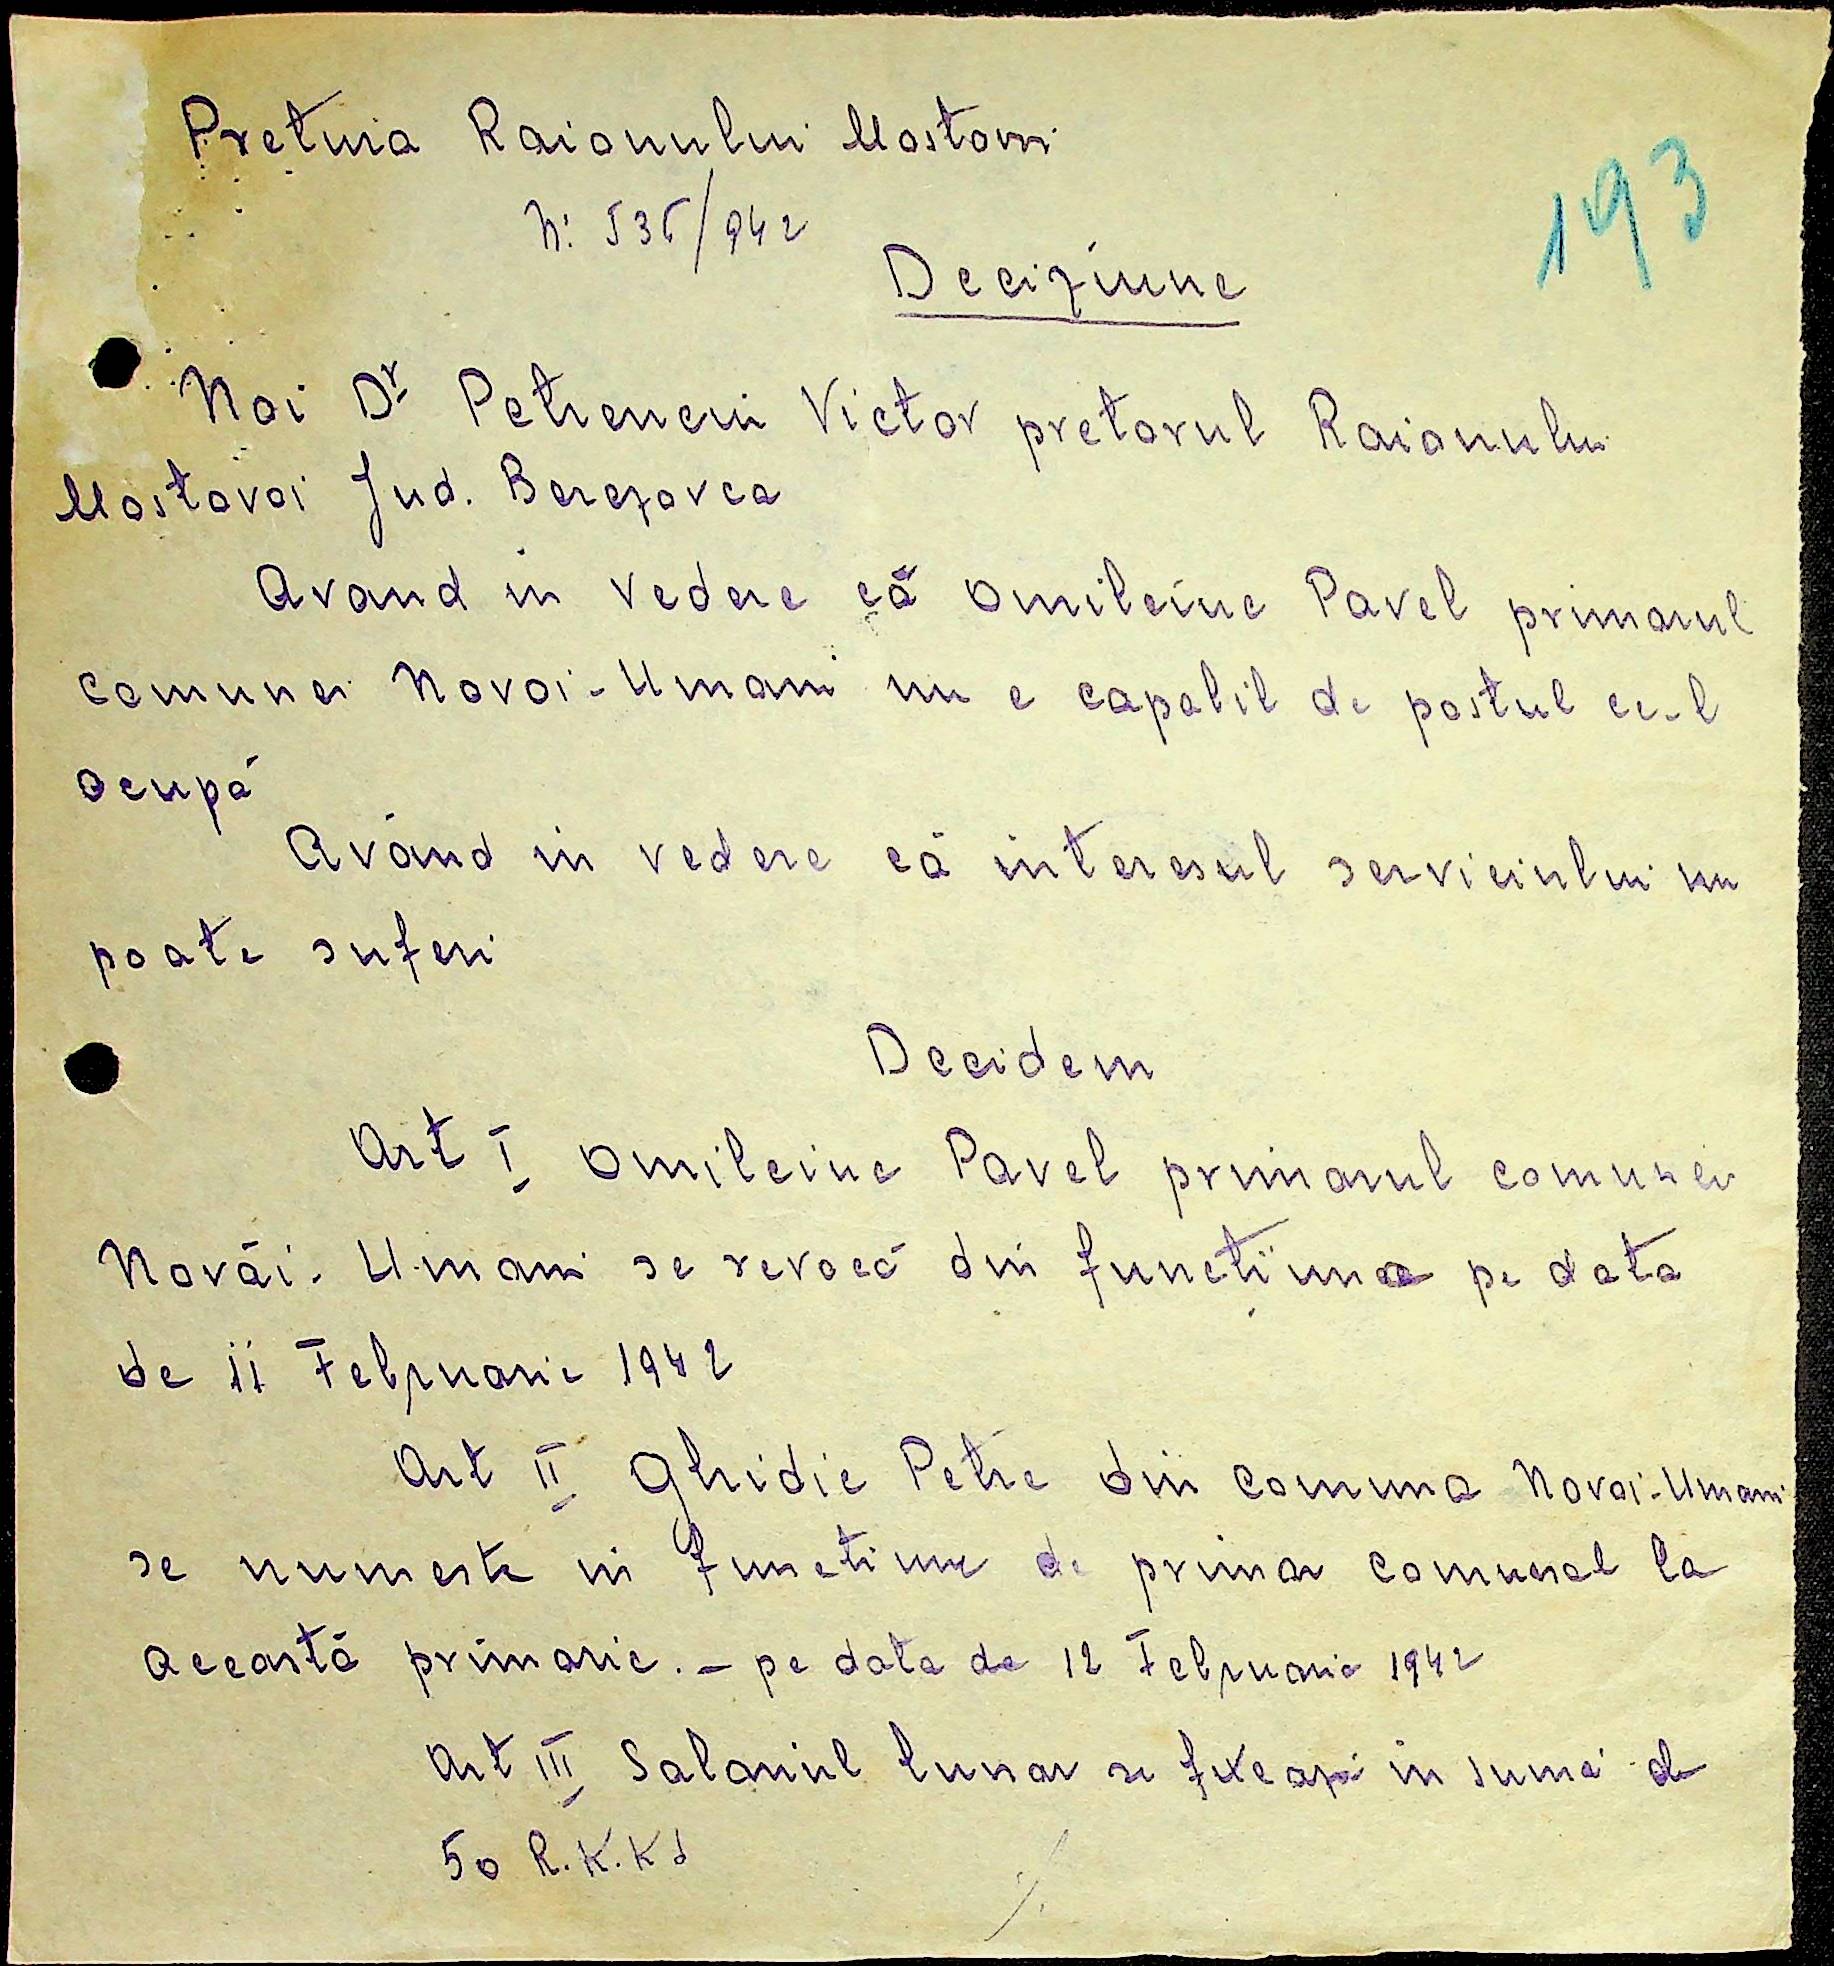 Pretura Raionului Mostovoi
193
N: 535/942
Deciziune
Noi Dr Petrencui Victor pretorul Raionului
Mostovoi Jud. Berezovca
Avand in vedere că Omileine Pavel primarul
comunei Novoi-Umani nu e capabil de postul ce-l
ocupă
Având in vedere că interesul serviciului nu
poate suferi
Decidem
Art I Omileine Pavel primarul comunei
Novăi-Umani se revocă din functiunea pe data
de 11 Februarie 1942
Art II Ghidic Petre din comuna Novoi-Umani
se numeste in functiune de primar comunal la
această primarie. – pe data de 12 Februarie 1942
Art III Salariul lunar se fixează in sumă de
50 R.K.K.S